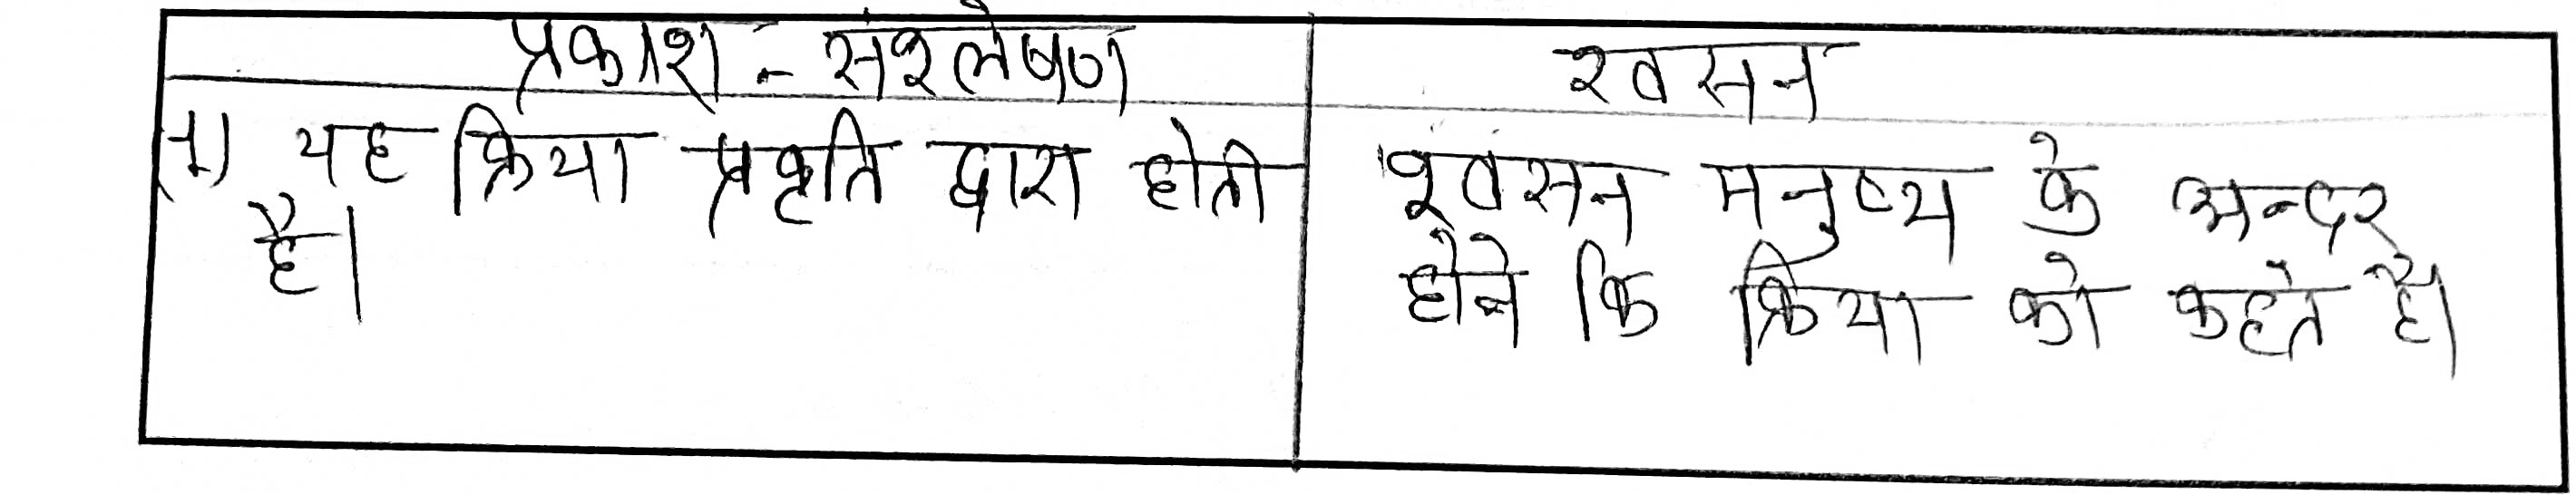 प्रकाश - संश्लेषण
श्वसन
(1) यह क्रिया प्रकृति द्वारा होती
है।
श्वसन मनुष्य के अन्दर
होने कि क्रिया को कहते है।